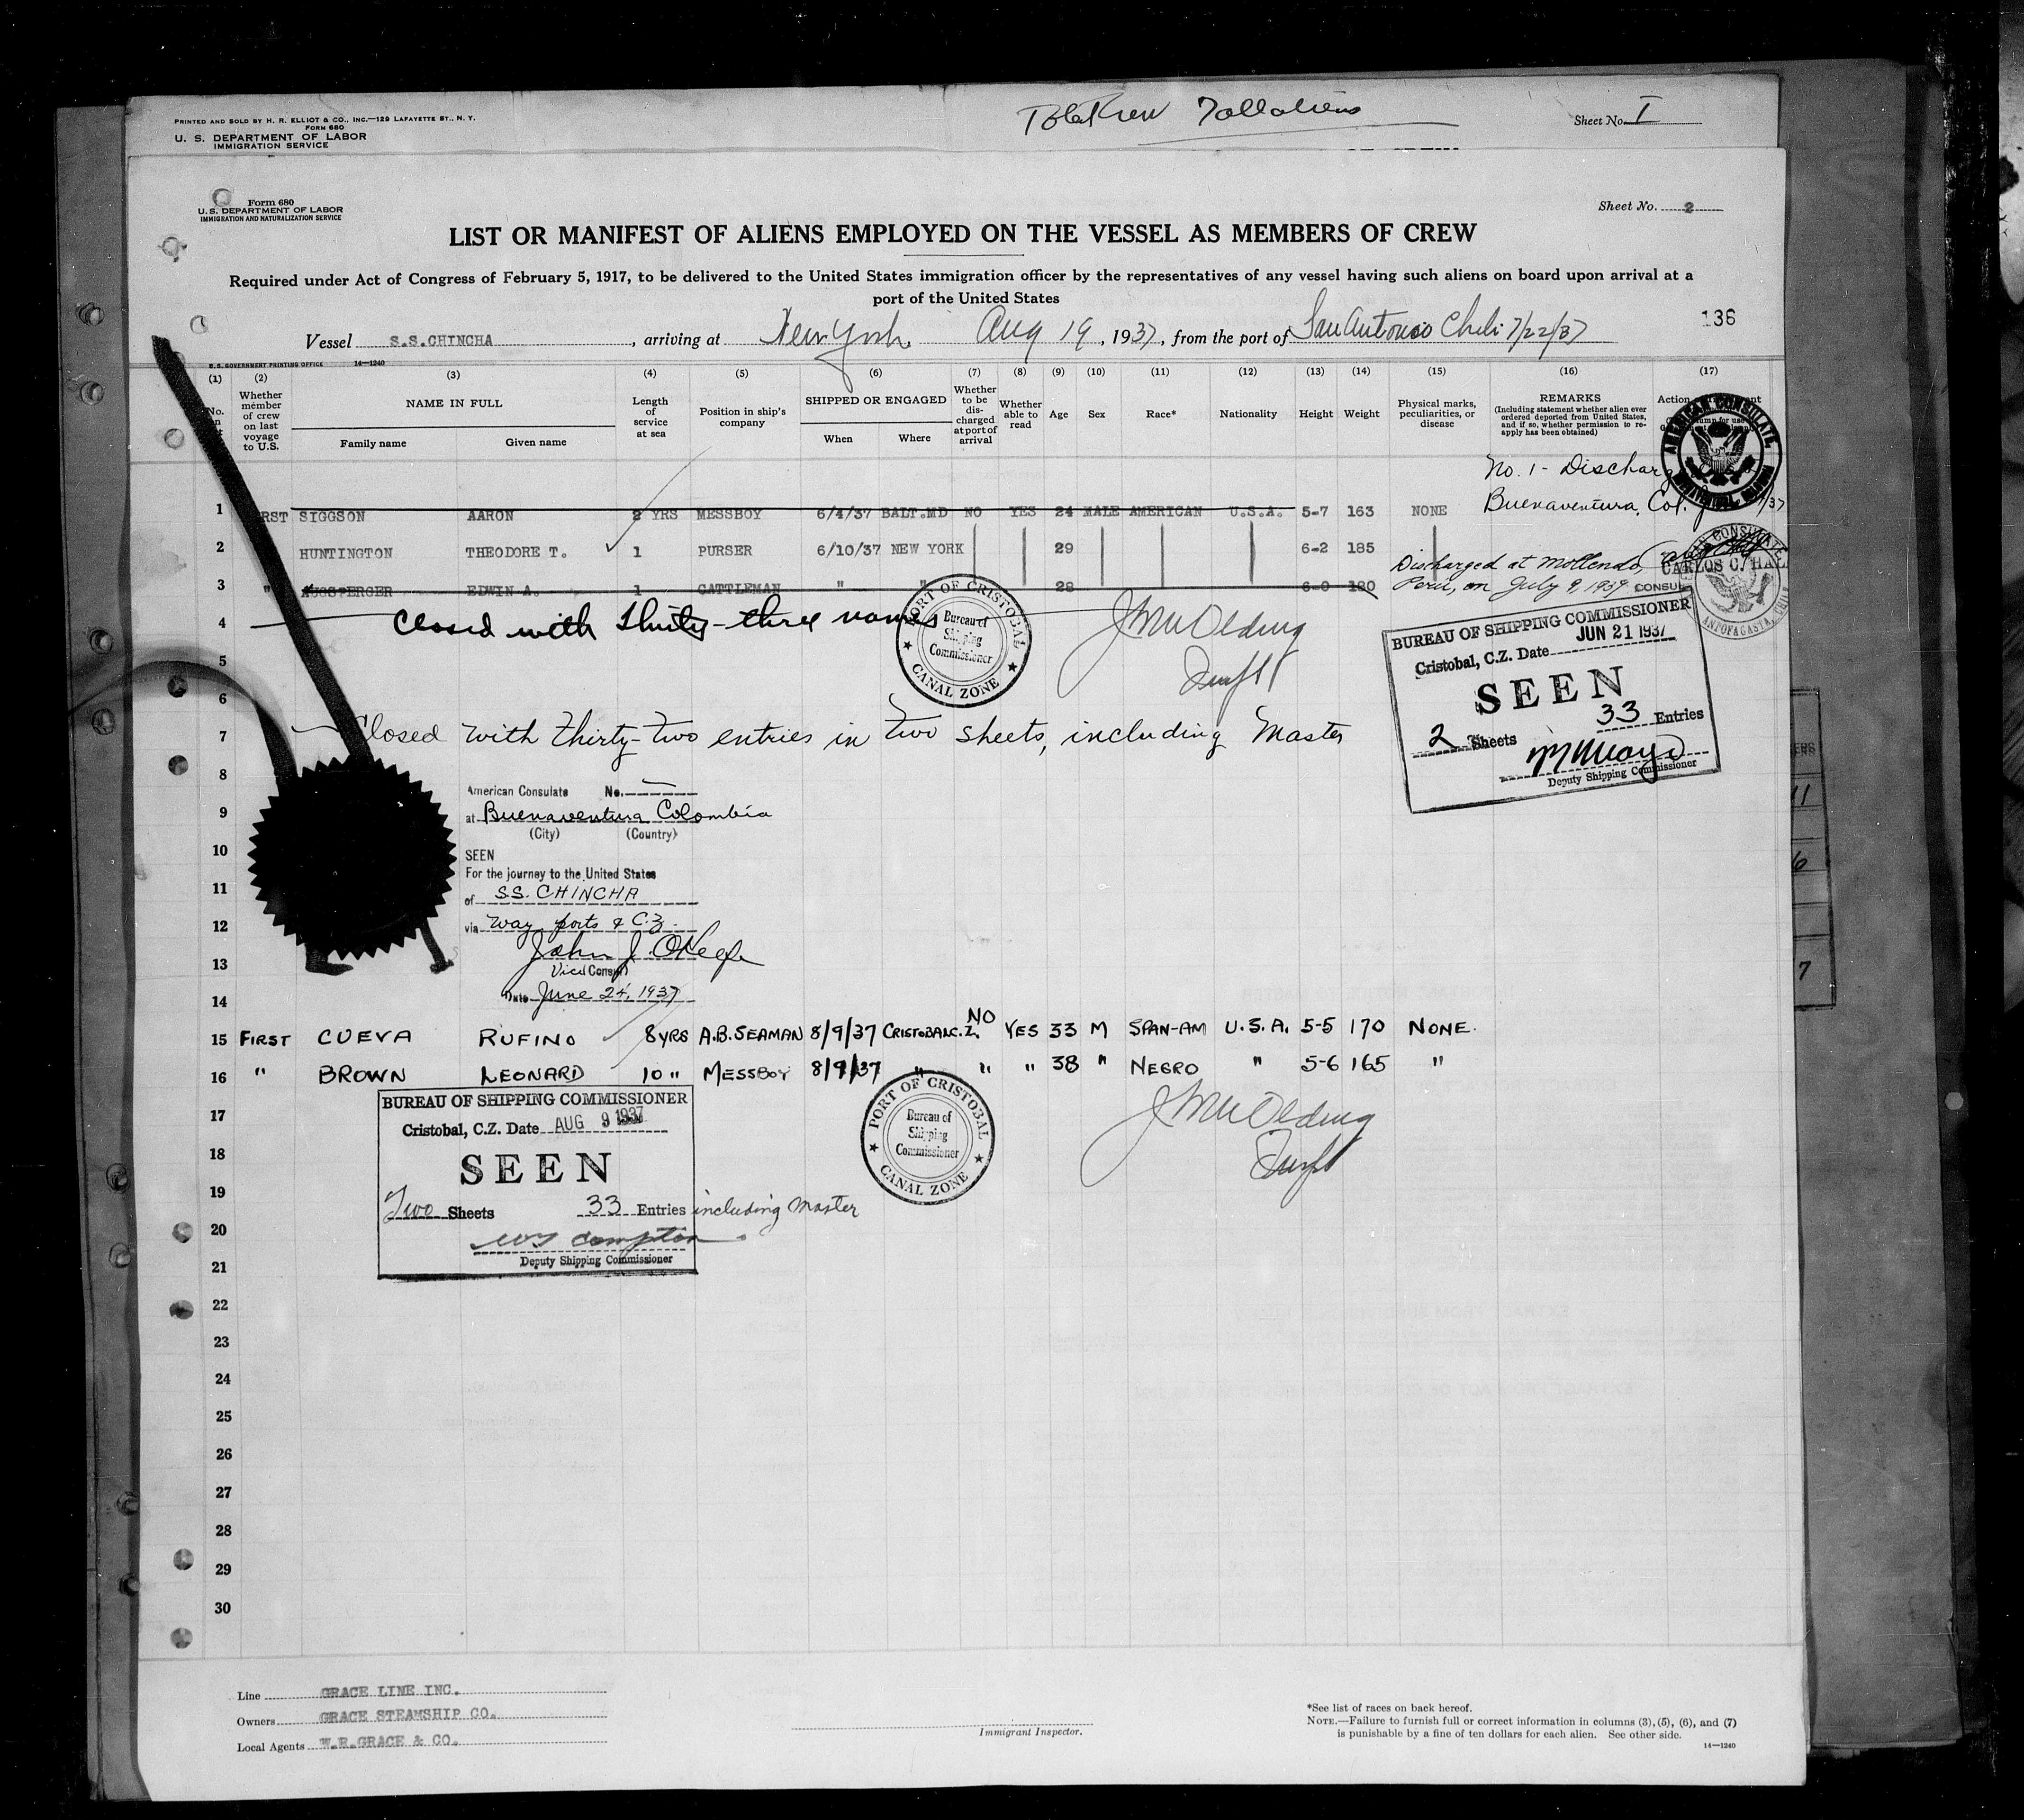 PRINTED AND SOLD BY H. R. ELLIOT & CO., INC.—129 LAFAYETTE ST., N. Y.
FORM 680
U. S. DEPARTMENT OF LABOR
IMMIGRATION SERVICE
Sheet No. I
Form 680
U. S. DEPARTMENT OF LABOR
IMMIGRATION AND NATURALIZATION SERVICE
Sheet No. 2
LIST OR MANIFEST OF ALIENS EMPLOYED ON THE VESSEL AS MEMBERS OF CREW
Required under Act of Congress of February 5, 1917, to be delivered to the United States immigration officer by the representatives of any vessel having such aliens on board upon arrival at a
port of the United States
136
Vessel S.S.CHINCHA, arriving at New York, Aug 19, 1937, from the port of San Antonio Chili 7/22/37
U.S. GOVERNMENT PRINTING OFFICE 14—1240
(1) (2) (3) (4) (5) (6) (7) (8) (9) (10) (11) (12) (13) (14) (15) (16) (17)
No.
Whether member of crew on last voyage to U.S.
NAME IN FULL
Family name Given name
Length of service at sea
Position in ship's company
SHIPPED OR ENGAGED
When Where
Whether to be discharged at port of arrival
Whether able to read
Age Sex Race* Nationality Height Weight
Physical marks, peculiarities, or disease
REMARKS
(Including statement whether alien ever ordered deported from United States, and if so, whether permission to reapply has been obtained)
Action
AMERICAN CONSULATE
No. 1 - Discharg
Buenaventura, Col.
1 RST SIGGSON AARON 2 YRS MESSBOY 6/4/37 BALT.MD NO YES 24 MALE AMERICAN U.S.A. 5-7 163 NONE
2 HUNTINGTON THEODORE T. 1 PURSER 6/10/37 NEW YORK 29 6-2 185
Discharged at Mollendo,
Peru, on July 9, 1937
CARLOS C. HALL
CONSUL
ANTOFAGASTA, CHILE
3 " EDWIN A. 1 CATTLEMAN " " 28 6-0 180
4 Closed with thirty-three names
PORT OF CRISTOBAL
Bureau of
Shipping
Commissioner
CANAL ZONE
BUREAU OF SHIPPING COMMISSIONER
Cristobal, C.Z. Date JUN 21 1937
SEEN
2 Sheets 33 Entries
Deputy Shipping Commissioner
5
6
7 Closed with thirty-two entries in two sheets, including Master
8
American Consulate No.
9
at Buenaventura Colombia
(City) (Country)
10
SEEN
For the journey to the United States
11
of SS. CHINCHA
12
via way ports & C.Z.
John J. O'Keefe
13
Vice Consul
14
Date June 24, 1937
15 FIRST CUEVA RUFINO 8 YRS A.B. SEAMAN 8/9/37 CRISTOBAL C.Z. NO YES 33 M SPAN-AM U.S.A. 5-5 170 NONE.
16 " BROWN LEONARD 10 " MESSBOY 8/9/37 " " " 38 " NEGRO " 5-6 165 "
17
BUREAU OF SHIPPING COMMISSIONER
Cristobal, C.Z. Date AUG 9 1937
18
SEEN
19
Two Sheets 33 Entries including Master
20
Deputy Shipping Commissioner
PORT OF CRISTOBAL
Bureau of
Shipping
Commissioner
CANAL ZONE
21
22
23
24
25
26
27
28
29
30
Line GRACE LINE INC.
Owners GRACE STEAMSHIP CO.
Local Agents W.R.GRACE & CO.
Immigrant Inspector.
*See list of races on back hereof.
NOTE.—Failure to furnish full or correct information in columns (3), (5), (6), and (7)
is punishable by a fine of ten dollars for each alien. See other side.
14—1240